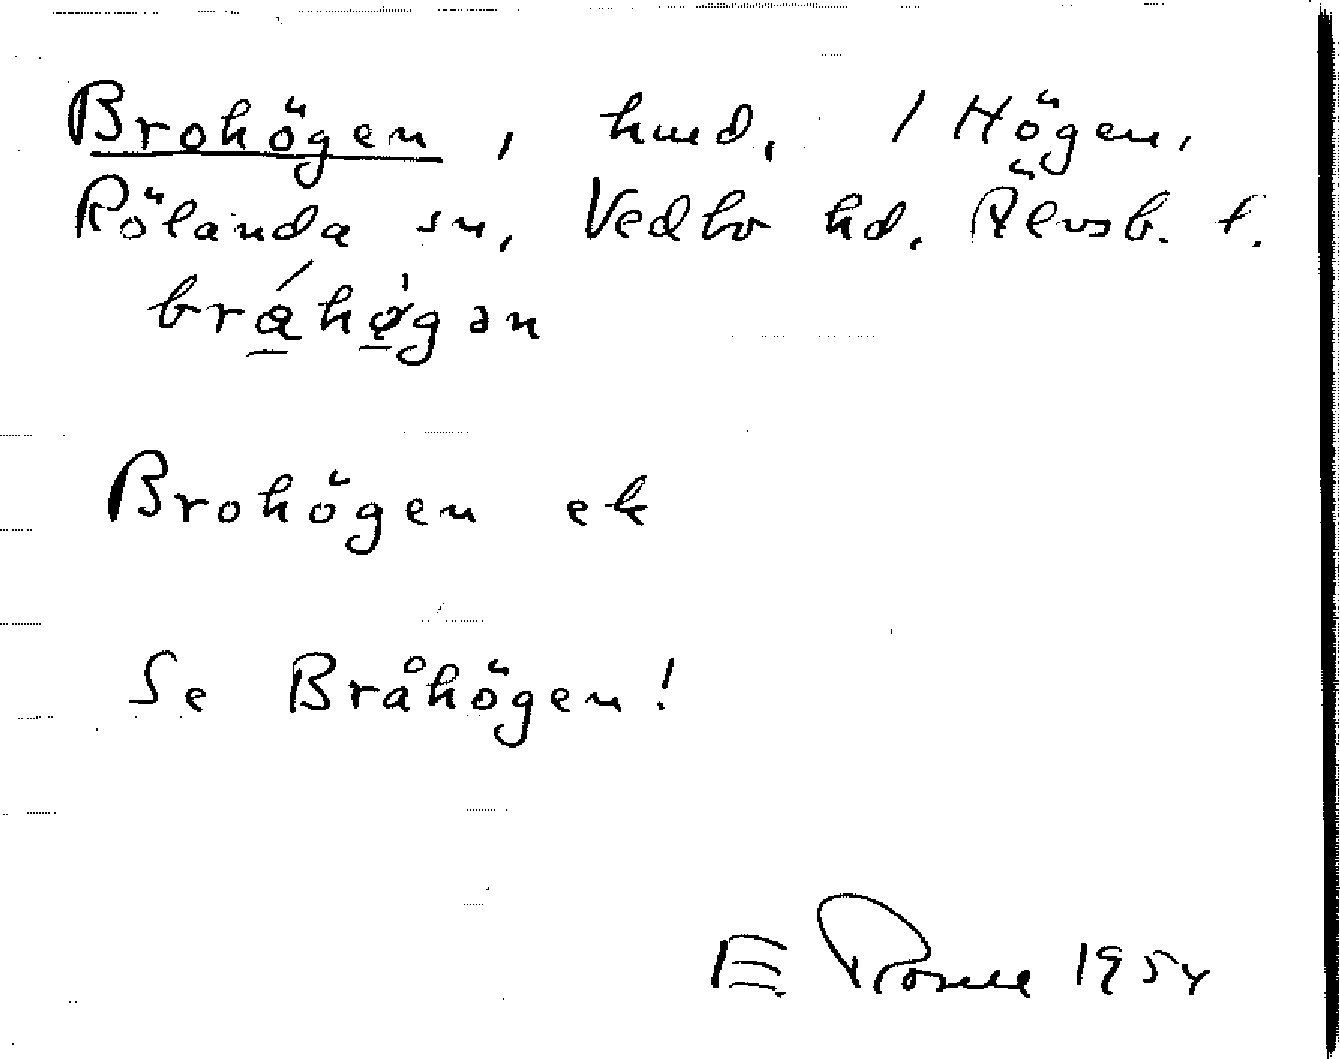 Brohögen, hmd, 1 Högen,
Rölanda sn, Vedbo hd. Älvsb. l.
bråhøgan
Brohögen ek
Se Bråhögen!
E 1954